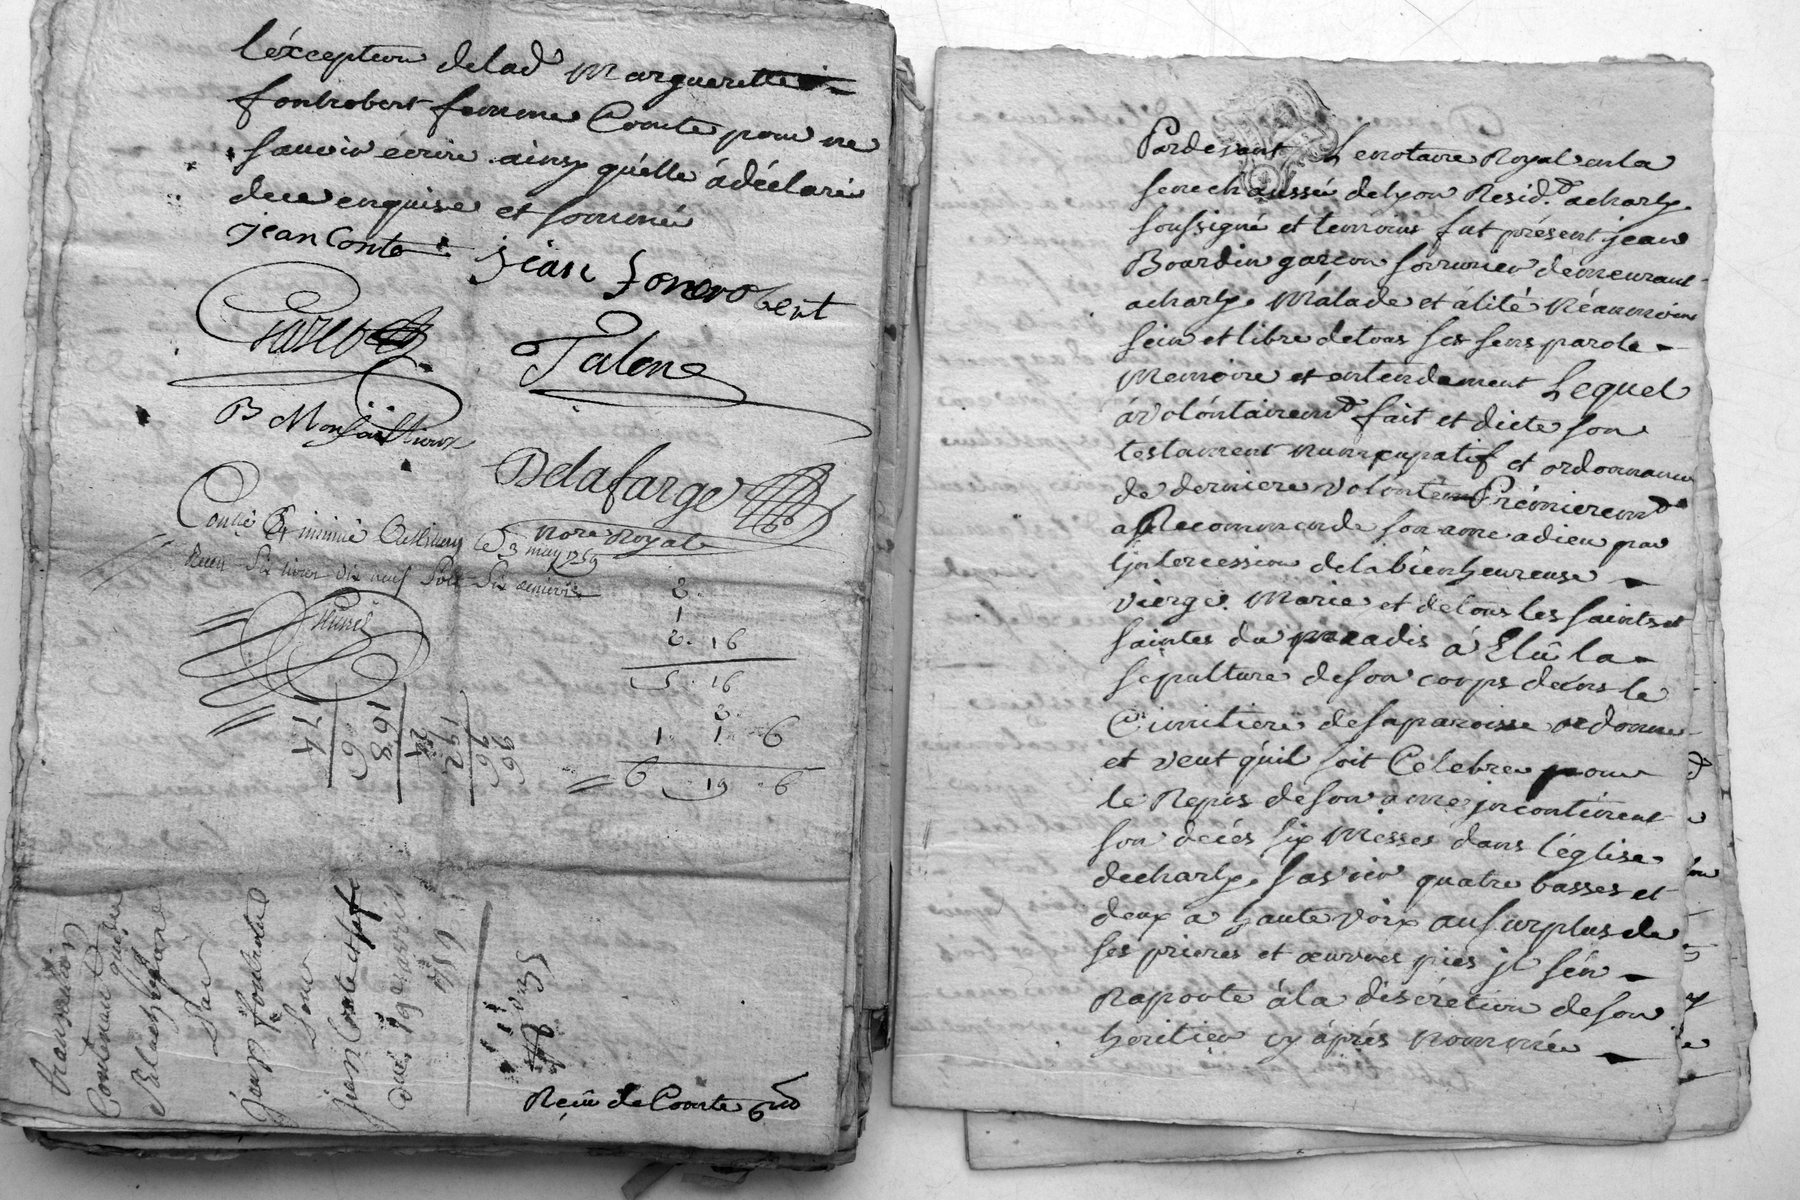 l'éxception delad Marguerette
fontrobert femme Comte pour ne
sauoir écrire ainsy qu'elle á déclaré
dece enquise et sommé
jean Conte jean fonrobert
Talone
B Monfoilloux
Delafarge
nore Royal
Conllé Et insinué ce 3 may 1759
Receu Six livres dix neuf Sols Six deniers
2.
1
2. 16
5. 16
2.
1. 1. 6
6 19. 6
174
168
6
24
192
96
96
transaction
Contenant quit
par
jean fontrobert
pour
jean Conte et sa fe
du 19e avril
1759
Reçu de Comte 6
Pardevant Le notaire Royal en la
senechaussée de lyon Resid.t a charly
soussigné et temoins fut présent jean
Bourdin garçon demeurant
a charly Malade et álité Néanmoins
sein et libre de tous ses sens parole
Memoire et entendement Lequel
á volóntairemt fait et dicté son
testament nuncupatif et ordonnance
de derniere volónté Prémieremt
a Recommendé son ame a dieu par
L'jntercession de la bienheureuse
vierge Marie et de tous les saints et
saintes du paradis á Elû la
sépulture de son corps dans le
Cimitiere de sa paroisse ordonne
et veut qu'il soit Célebré pour
le Repos de son ame jncontinent
son décés six Messes dans l'église
de charly savoir quatre basses et
deux a haute voix au surplus de
ses prieres et œuvres pies jl s'en
Raporte á la discretion de son
heritier cy áprés nommée